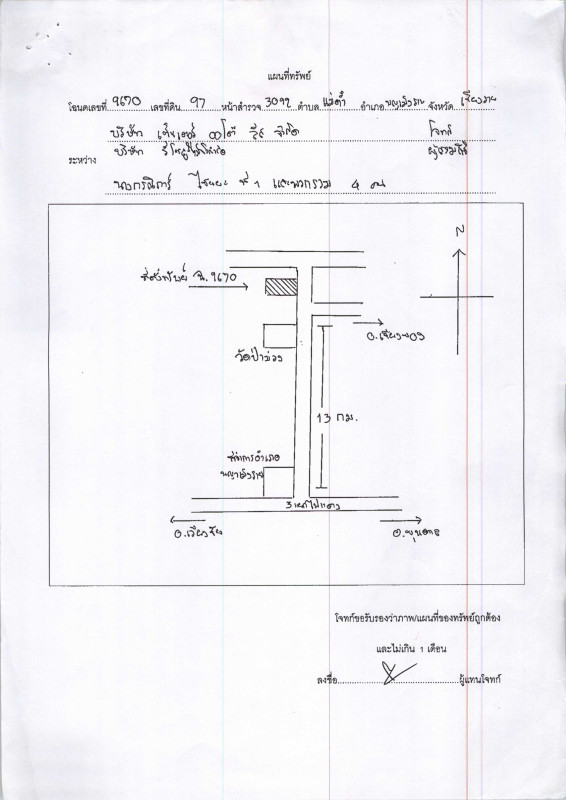 แผนที่ทรัพย์
โฉนดเลขที่ 9670 เลขที่ดิน 97 หน้าสำรวจ 3092 ตำบล แม่ต๋ำ อำเภอ พญาเม็งราย จังหวัด เชียงราย
บริษัท จำกัด โจทก์
บริษัท
ระหว่าง
ที่ 1 และพวกรวม 4 คน
N
ที่ตั้งทรัพย์ ฉ. 9670
อ.เชียงของ
วัดป่าม่วง
13 กม.
ที่ว่าการอำเภอ
พญาเม็งราย
3 แยกไฟแดง
อ.เวียงชัย
อ.ขุนตาล
โจทก์ขอรับรองว่าภาพ/แผนที่ของทรัพย์ถูกต้อง
และไม่เกิน 1 เดือน
ลงชื่อ ผู้แทนโจทก์